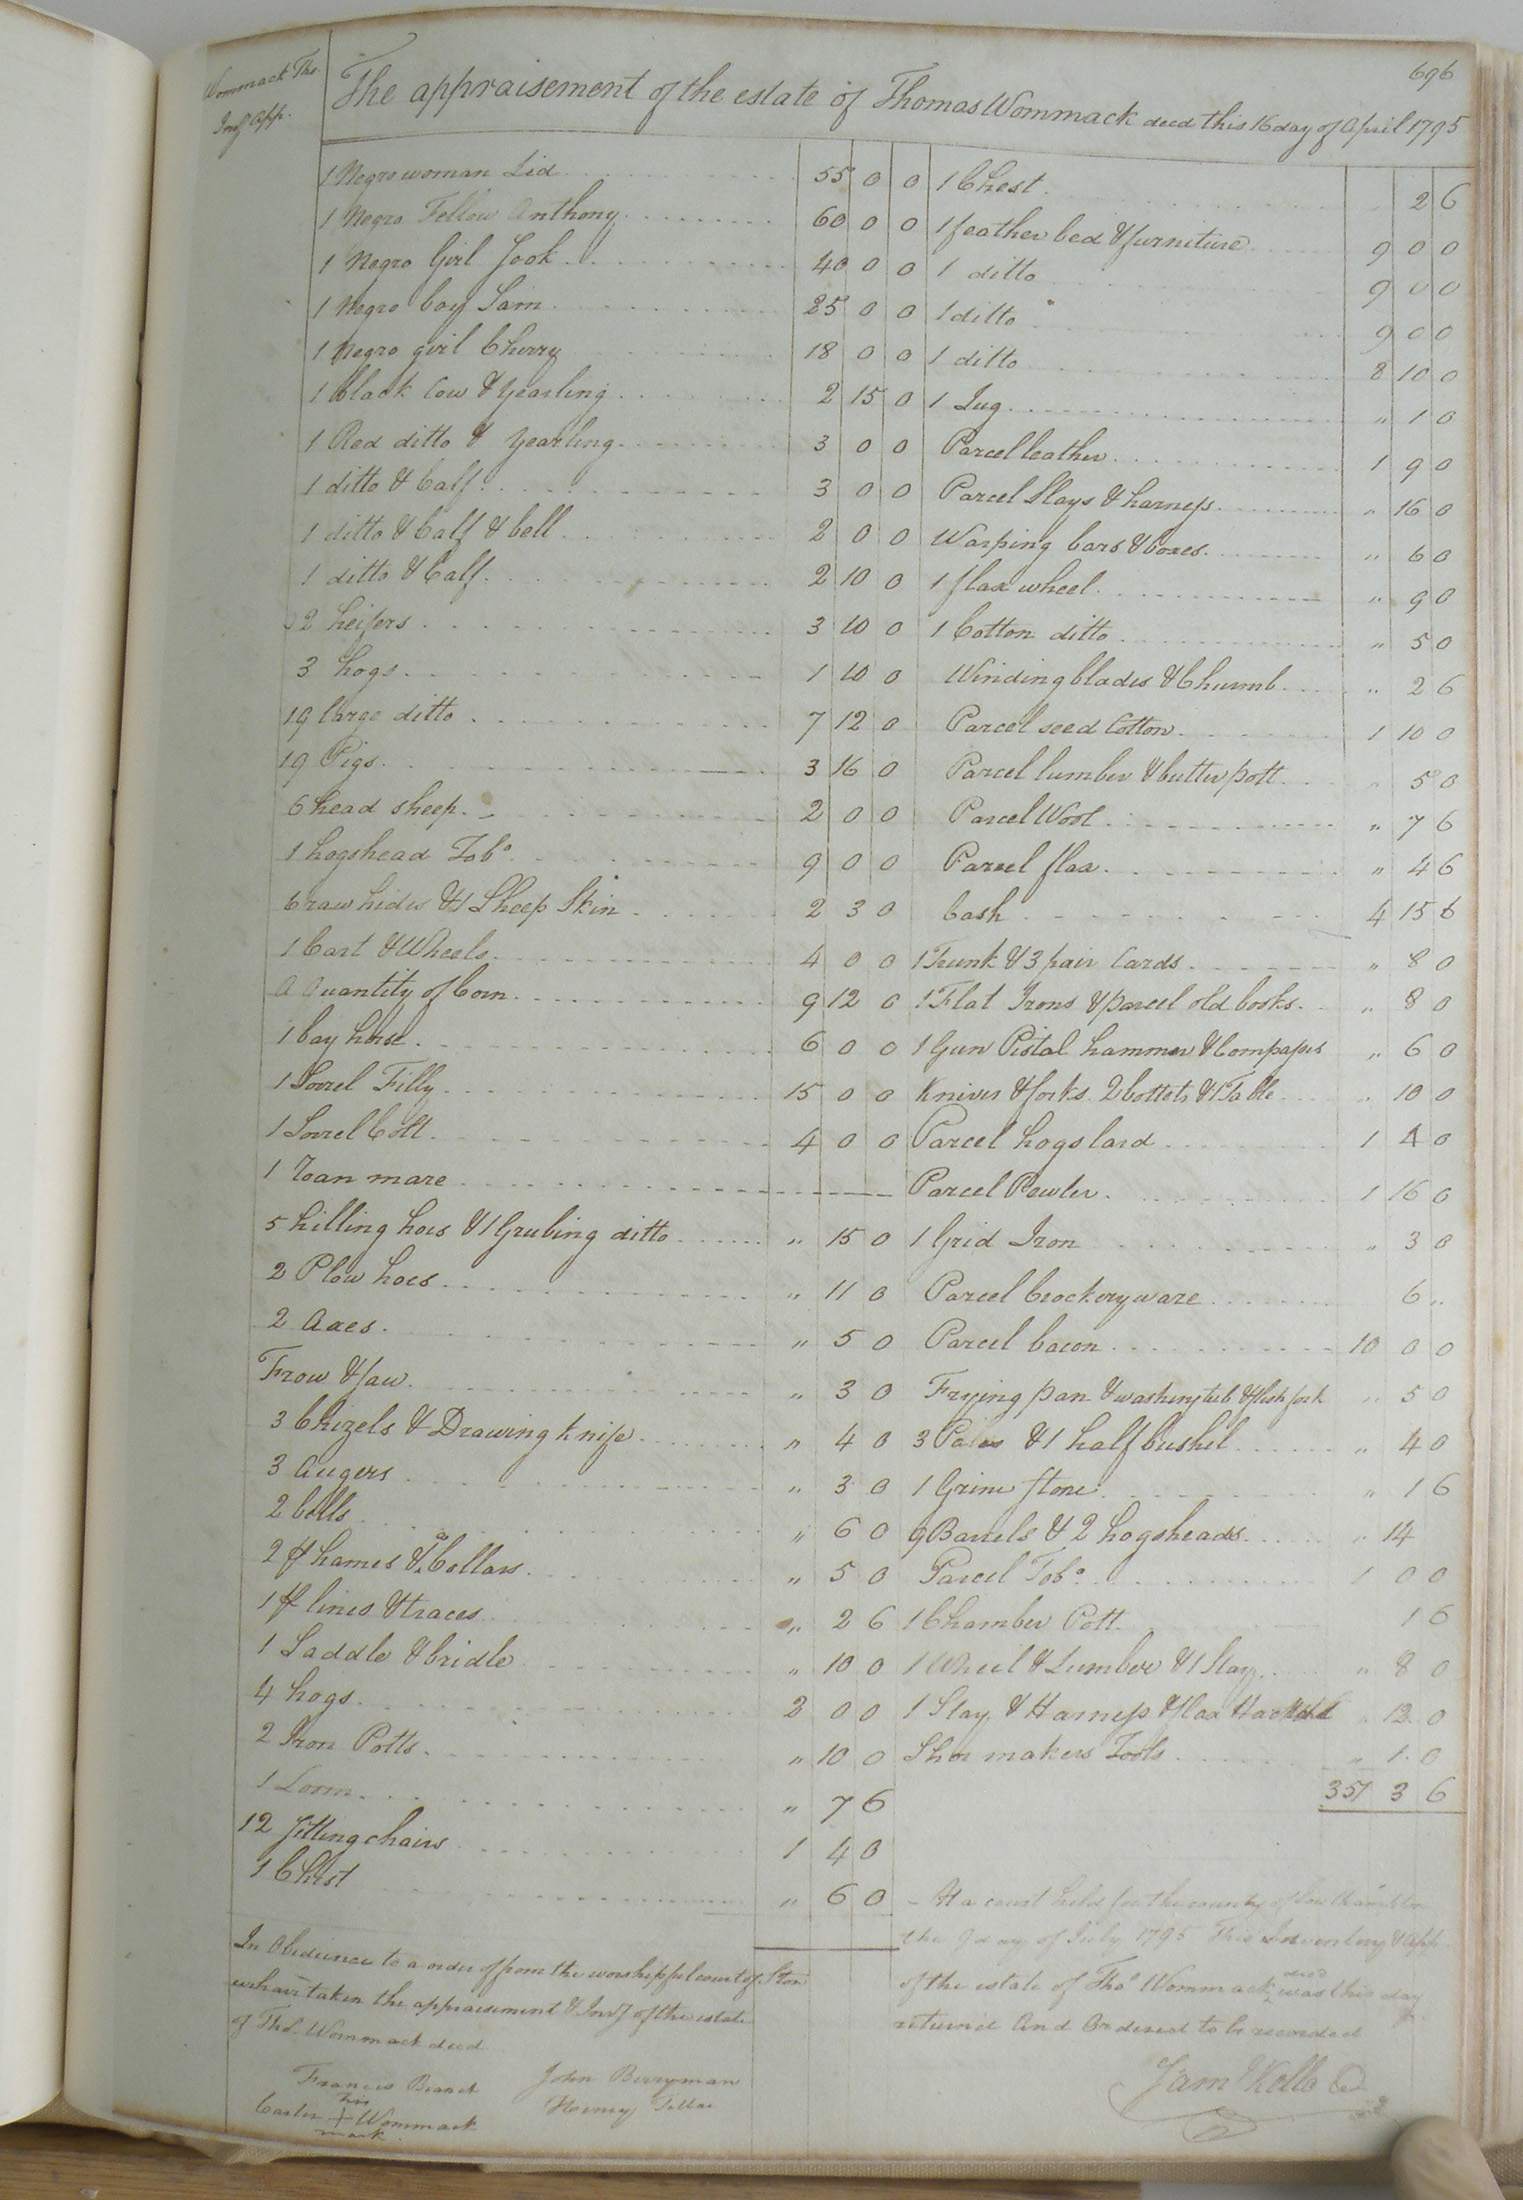 696
Wommack Tho
Invy App.
The appraisement of the estate of Thomas Wommack decd this 16 day of April 1795
1 Negro woman Lid 55 0 0
1 Negro Fellow Anthony 60 0 0
1 Negro Girl Jook 40 0 0
1 Negro boy Sam 25 0 0
1 Negro girl Cherry 18 0 0
1 black Cow & yearling 2 15 0
1 Red ditto & yearling 3 0 0
1 ditto & Calf 3 0 0
1 ditto & Calf & bell 2 0 0
1 ditto & Calf 2 10 0
2 heifers 3 10 0
3 hogs 1 10 0
19 large ditto 7 12 0
19 Pigs 3 16 0
6 head sheep 2 0 0
1 hogshead Tobo 9 0 0
6 raw hides & 1 Sheep Skin 2 3 0
1 Cart & Wheels 4 0 0
A Quantity of Corn 9 12 0
1 bay horse 6 0 0
1 Sorrel Filly 15 0 0
1 Sorrel Colt 4 0 0
1 roan mare
5 hilling hoes & 1 Grubing ditto " 15 0
2 Plow hoes " 11 0
2 Axes " 5 0
Frow & saw " 3 0
3 Chizels & Drawing knife " 4 0
3 Augers " 3 0
2 bells " 6 0
2 pr hames & 2 Collars " 5 0
1 pr lines & traces " 2 6
1 Saddle & bridle " 10 0
4 hogs 2 0 0
2 Iron Potts " 10 0
1 Loom " 7 6
12 sitting chairs 1 4 0
1 Chest " 6 0
In Obedience to a order of from the worshipful court of Ston
we have taken the appraisement & Invy of the estate
of Thos Wommack decd
Francis Branch John Berryman
his
Carter + Wommack Henry
mark
1 Chest 2 6
1 feather bed & furniture 9 0 0
1 ditto 9 0 0
1 ditto 9 0 0
1 ditto 8 10 0
1 Jug " 1 0
Parcel leather 1 9 0
Parcel Slays & harness " 16 0
Warping bars & boxes " 6 0
1 flax wheel " 9 0
1 Cotton ditto " 5 0
Winding blades & Churnb " 2 6
Parcel seed Cotton 1 10 0
Parcel lumber & butter pott " 5 0
Parcel Wool " 7 6
Parcel flax " 4 6
Cash 4 15 6
1 Trunk & 3 pair Cards " 8 0
1 Flat Irons & parcel old books " 8 0
1 Gun Pistol hammer & Compases " 6 0
Knives & forks 2 bottels & 1 Table " 10 0
Parcel hogs lard 1 4 0
Parcel Pewter 1 16 0
1 Grid Iron " 3 0
Parcel Crockeryware 6 "
Parcel bacon 10 0 0
Frying pan & washing tub & flesh fork " 5 0
3 Pales & 1 half bushel " 4 0
1 Grine stone " 1 6
9 Barrels & 2 hogsheads " 14
Parcel Tobo 1 0 0
1 Chamber Pott 1 6
1 Wheel & Lumber & 1 Slay " 8 0
1 Slay & Harness & flax Hackle " 12 0
Shoe makers Tools " 1 0
357 3 6
At a court held for the county of Southampton
the 9 day of July 1795 This Inventory & App
of the estate of Tho Wommack decd was this day
returnd and Ordered to be recorded
Saml Kello